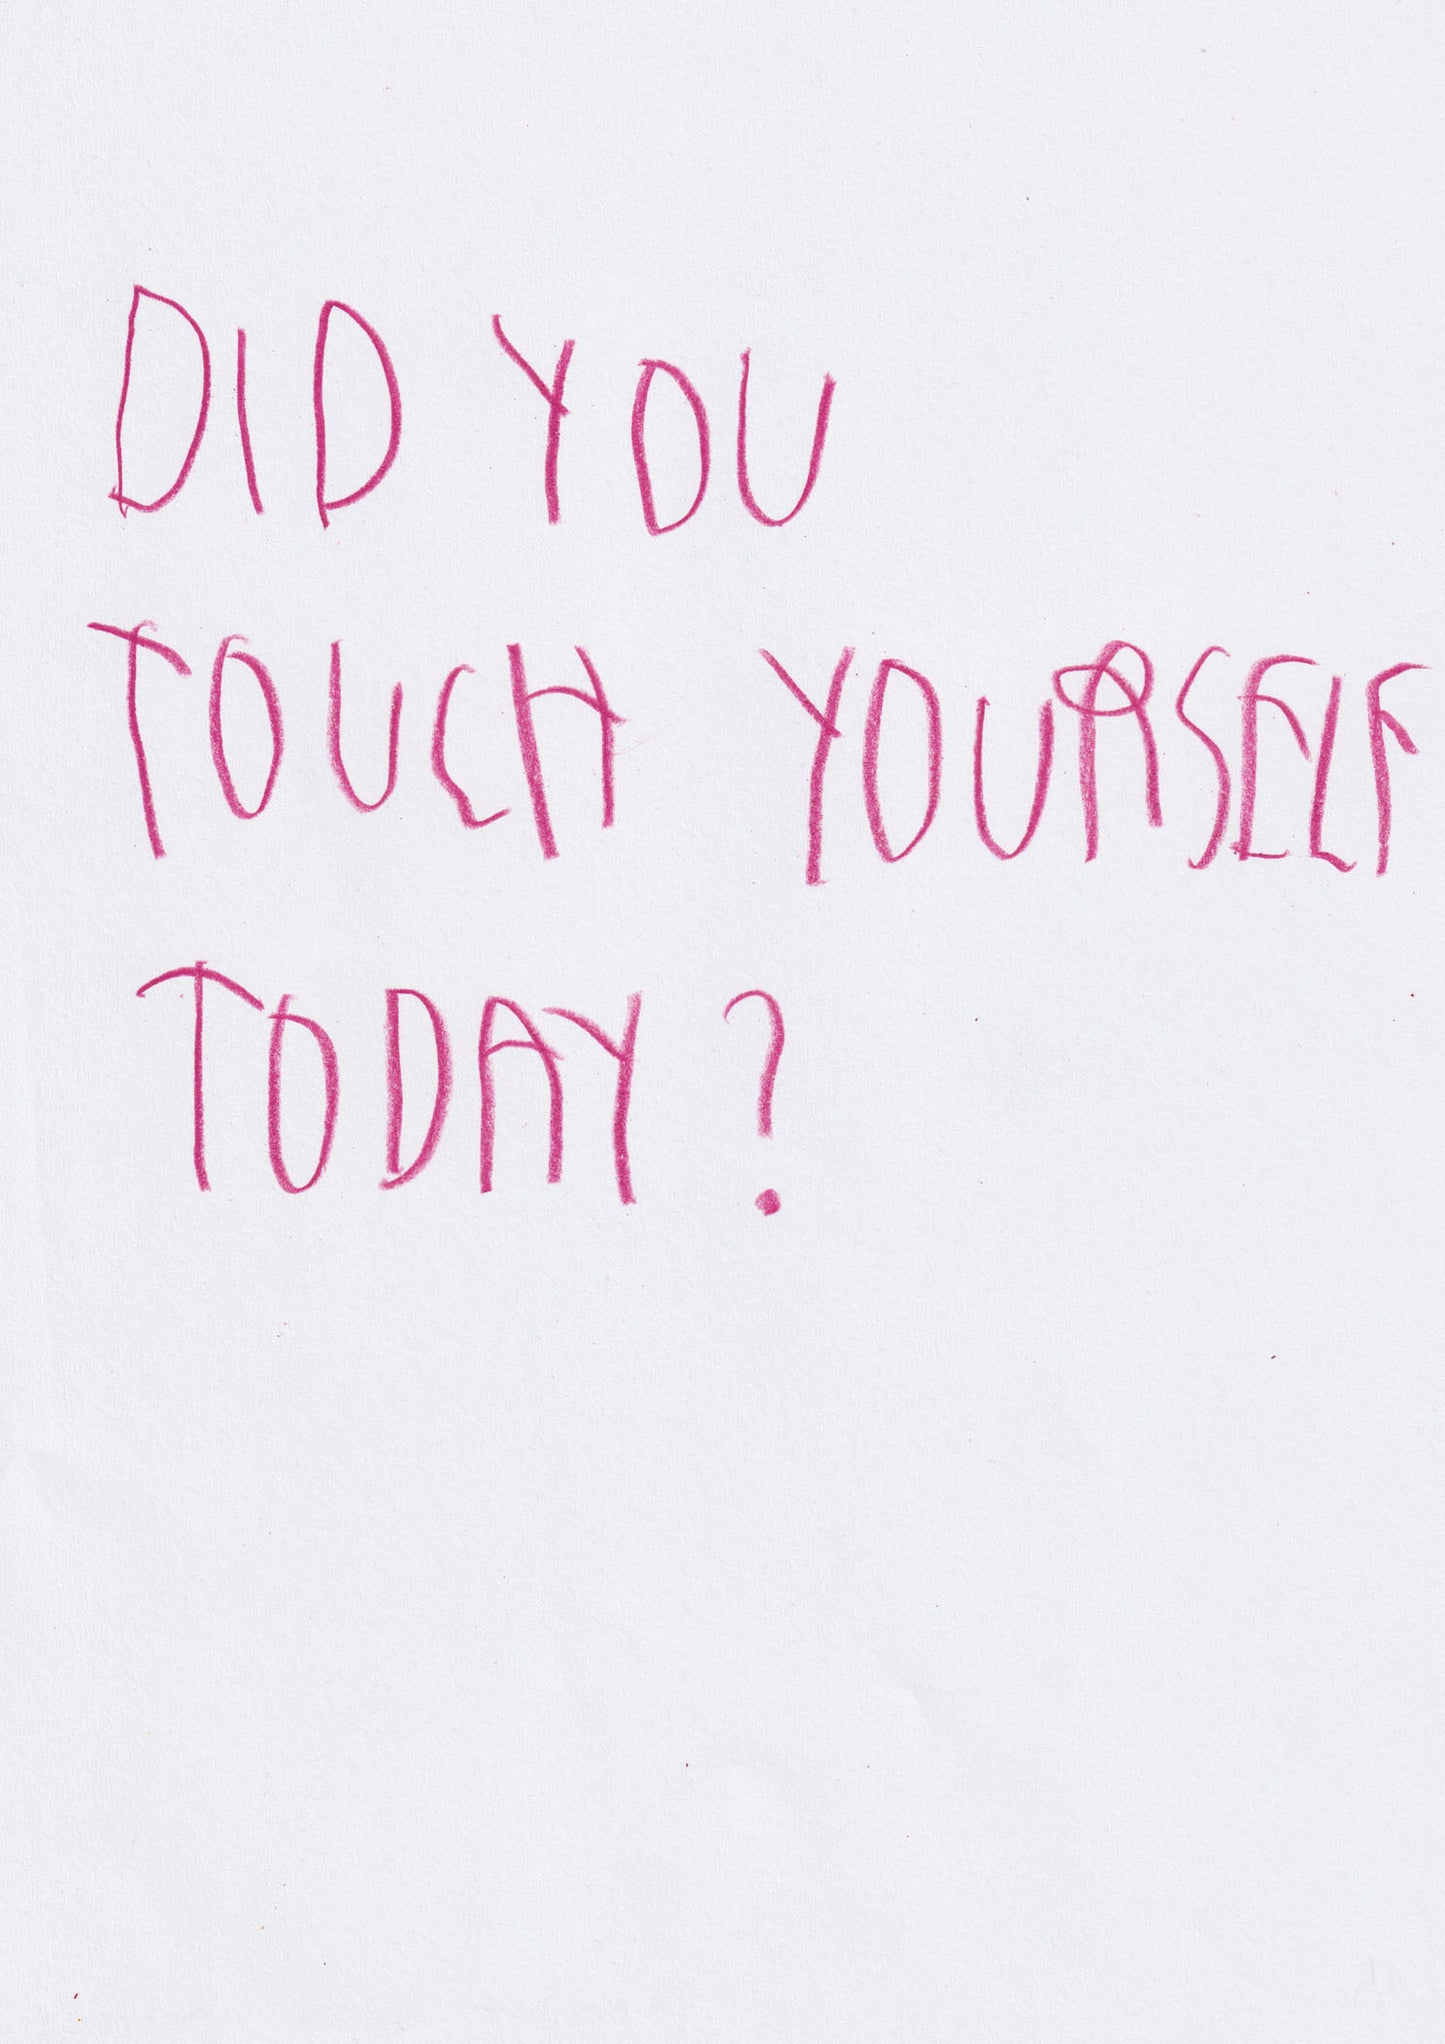 DID YOU
TOUCH YOURSELF
TODAY?